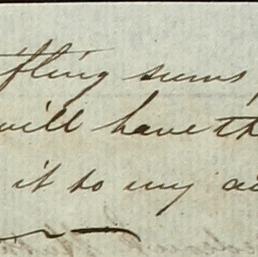 fling sums,
will have th
it to my a